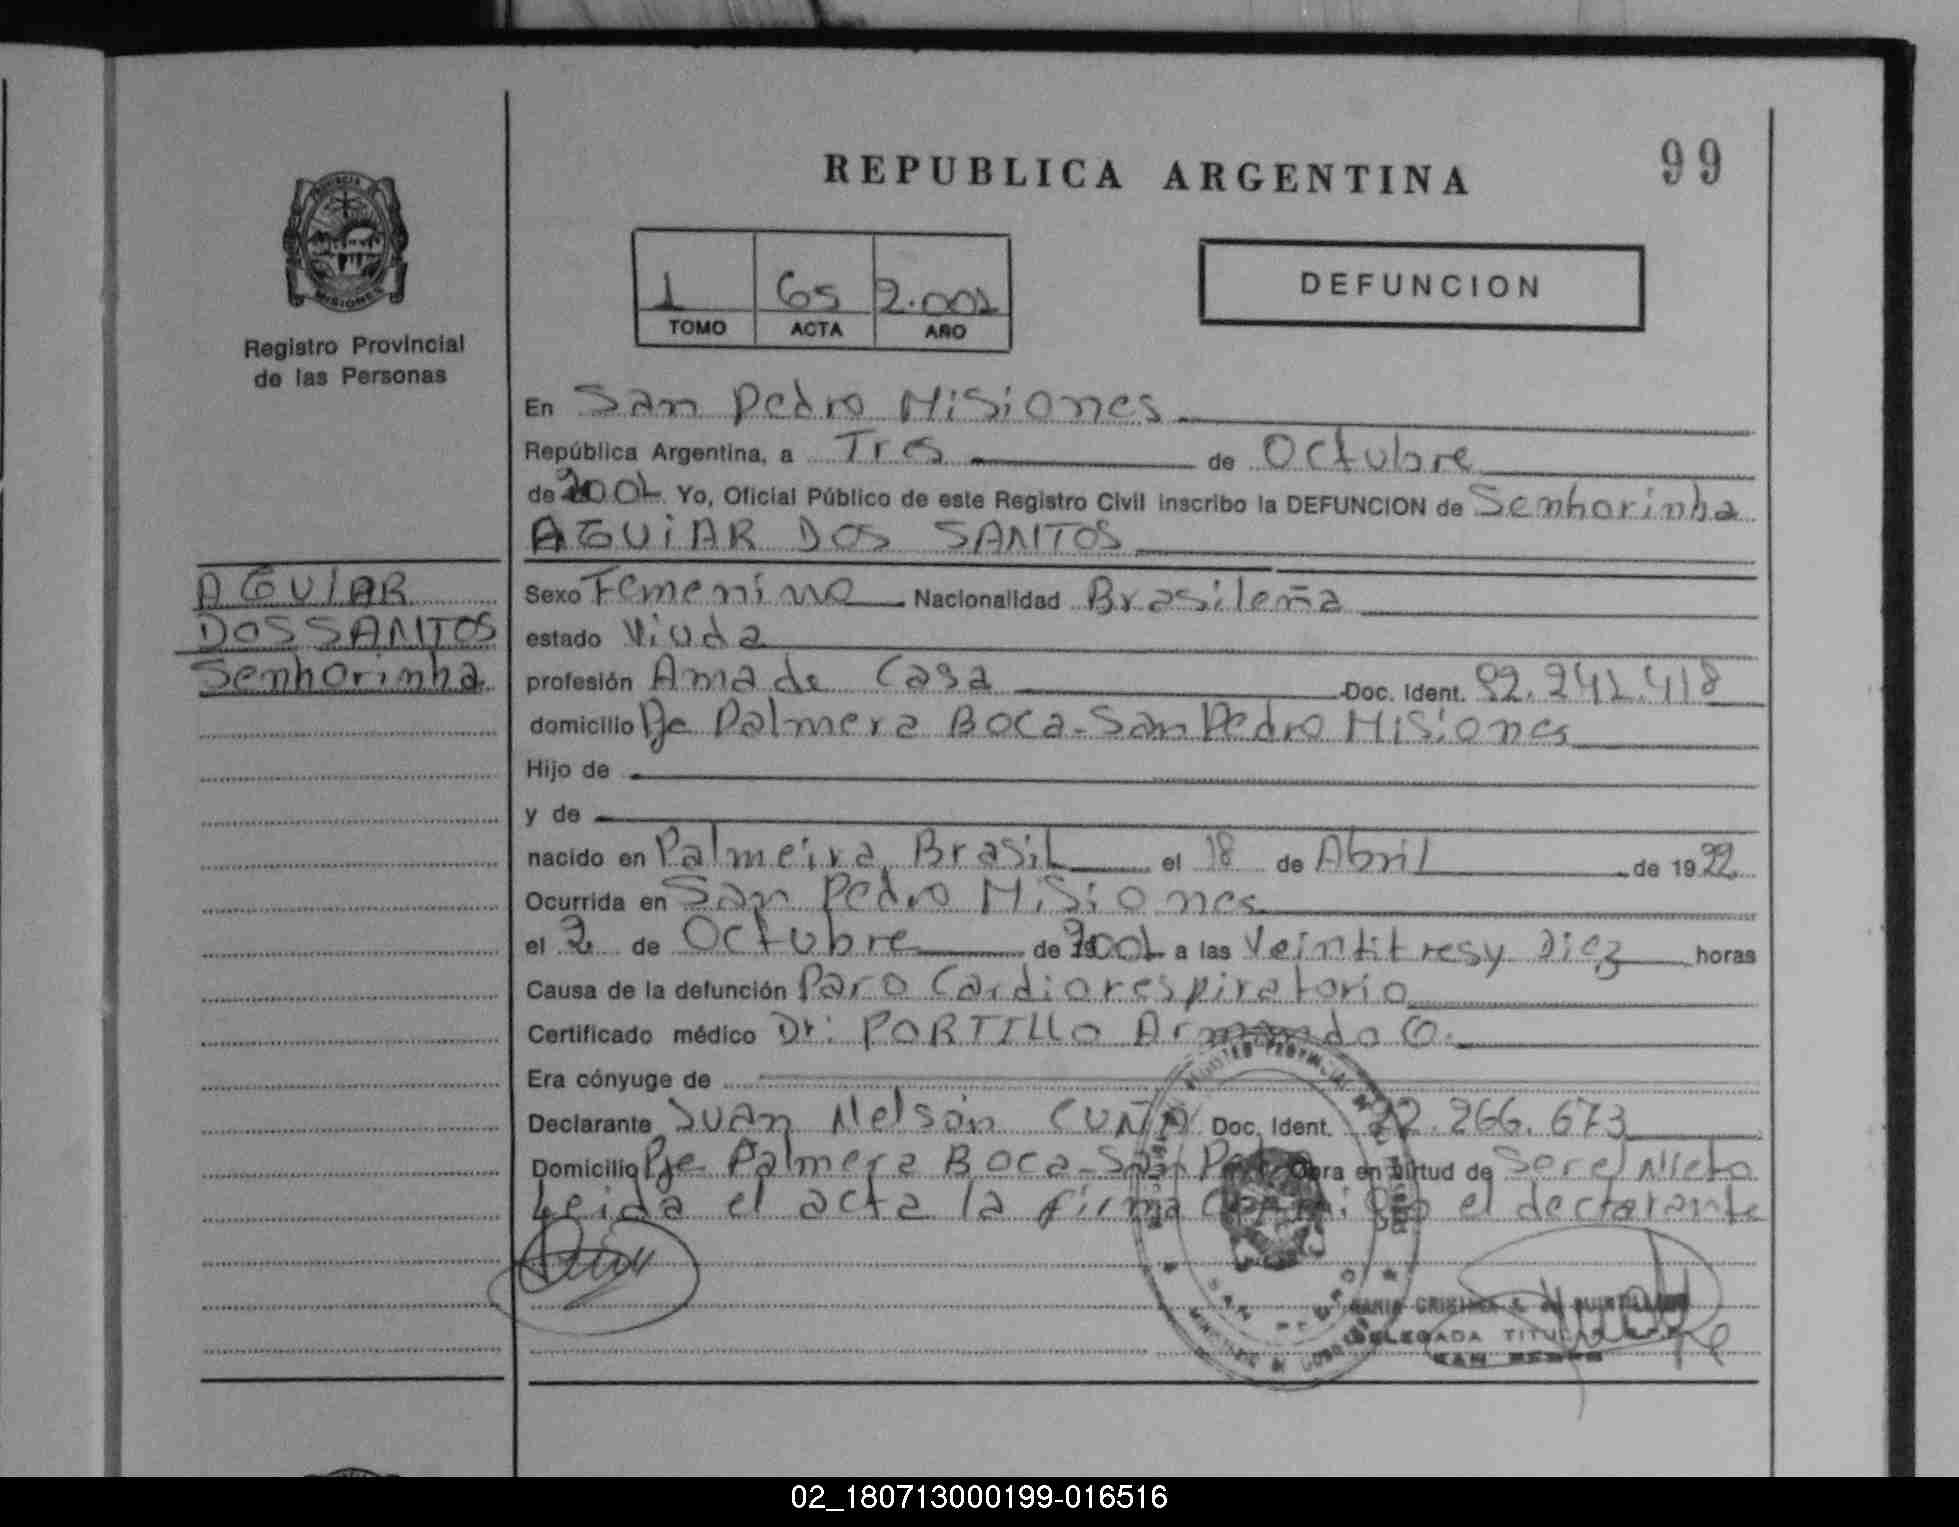 REPUBLICA ARGENTINA
99
PROVINCIA DE MISIONES
Registro Provincial
de las Personas
1 65 2.001
TOMO ACTA AÑO
DEFUNCION
En San Pedro Misiones
República Argentina, a Tres de Octubre
de 2001 Yo, Oficial Público de este Registro Civil inscribo la DEFUNCION de Senhorinha
AGUIAR DOS SANTOS
AGUIAR
DOS SANTOS
Senhorinha
Sexo Femenino Nacionalidad Brasileña
estado Viuda
profesión Ama de Casa Doc. Ident. 92.241.418
domicilio Pje Palmera Boca-San Pedro Misiones
Hijo de
y de
nacido en Palmeira Brasil el 18 de Abril de 1922
Ocurrida en San Pedro Misiones
el 2 de Octubre de 2001 a las Veintitres y Diez horas
Causa de la defunción Paro Cardiorespiratorio
Certificado médico Dr: PORTILLO Armando O.
Era cónyuge de
Declarante Juan Nelson CUÑA Doc. Ident. 22.266.673
Domicilio Pje Palmera Boca-San Pedro Obra en virtud de Ser el Nieto
Leida el acta la firma conmigo el declarante
DELEGADA TITULAR
SAN PEDRO
02_180713000199-016516